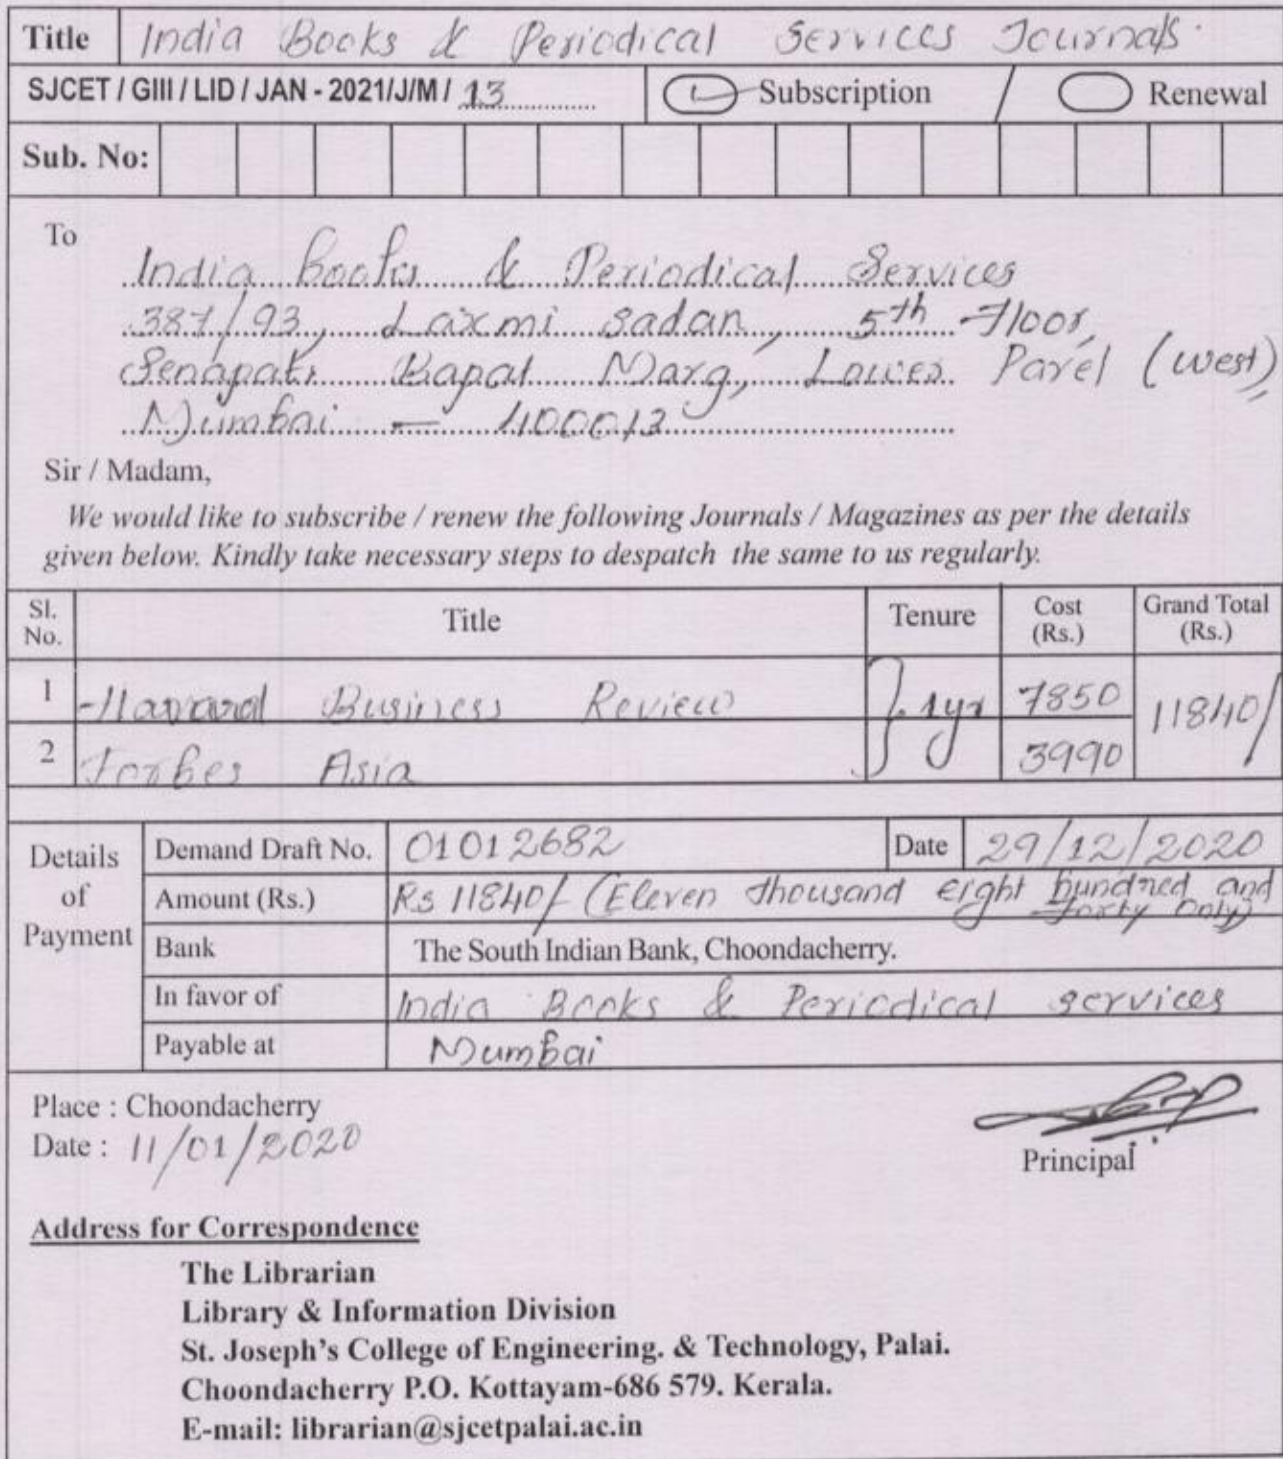 Title India Books & Periodical Services Journals.
SJCET / GIII / LID / JAN - 2021/J/M/ 13 Subscription / Renewal
Sub. No:
To
India Books & Periodical Services
387/93, Laxmi Sadan, 5th Floor,
Senapati Bapat Marg, Lower Parel (West),
Mumbai - 400013
Sir / Madam,
We would like to subscribe / renew the following Journals / Magazines as per the details
given below. Kindly take necessary steps to despatch the same to us regularly.
Sl. No. Title Tenure Cost (Rs.) Grand Total (Rs.)
1 Harvard Business Review 1yr 7850 11840/
2 Forbes Asia 3990
Details of Payment
Demand Draft No. 01012682 Date 29/12/2020
Amount (Rs.) Rs 11840/- (Eleven thousand eight hundred and
forty only)
Bank The South Indian Bank, Choondacherry.
In favor of India Books & Periodical services
Payable at Mumbai
Place : Choondacherry
Date : 11/01/2020
Principal
Address for Correspondence
The Librarian
Library & Information Division
St. Joseph's College of Engineering. & Technology, Palai.
Choondacherry P.O. Kottayam-686 579. Kerala.
E-mail: librarian@sjcetpalai.ac.in